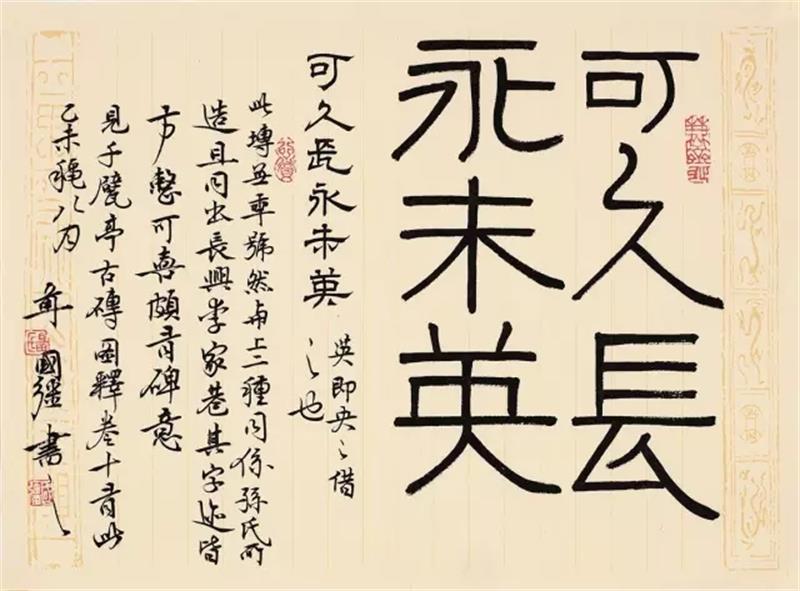 可久長
永未英
可久長永未英
英即央之借
之也
此塼無年號然與上二種同係孫氏所
造且同出長興李家巷其字迹皆
方整可喜頗有碑意
見千甓亭古磚圖釋卷十有此
乙未穐八月 國疆書